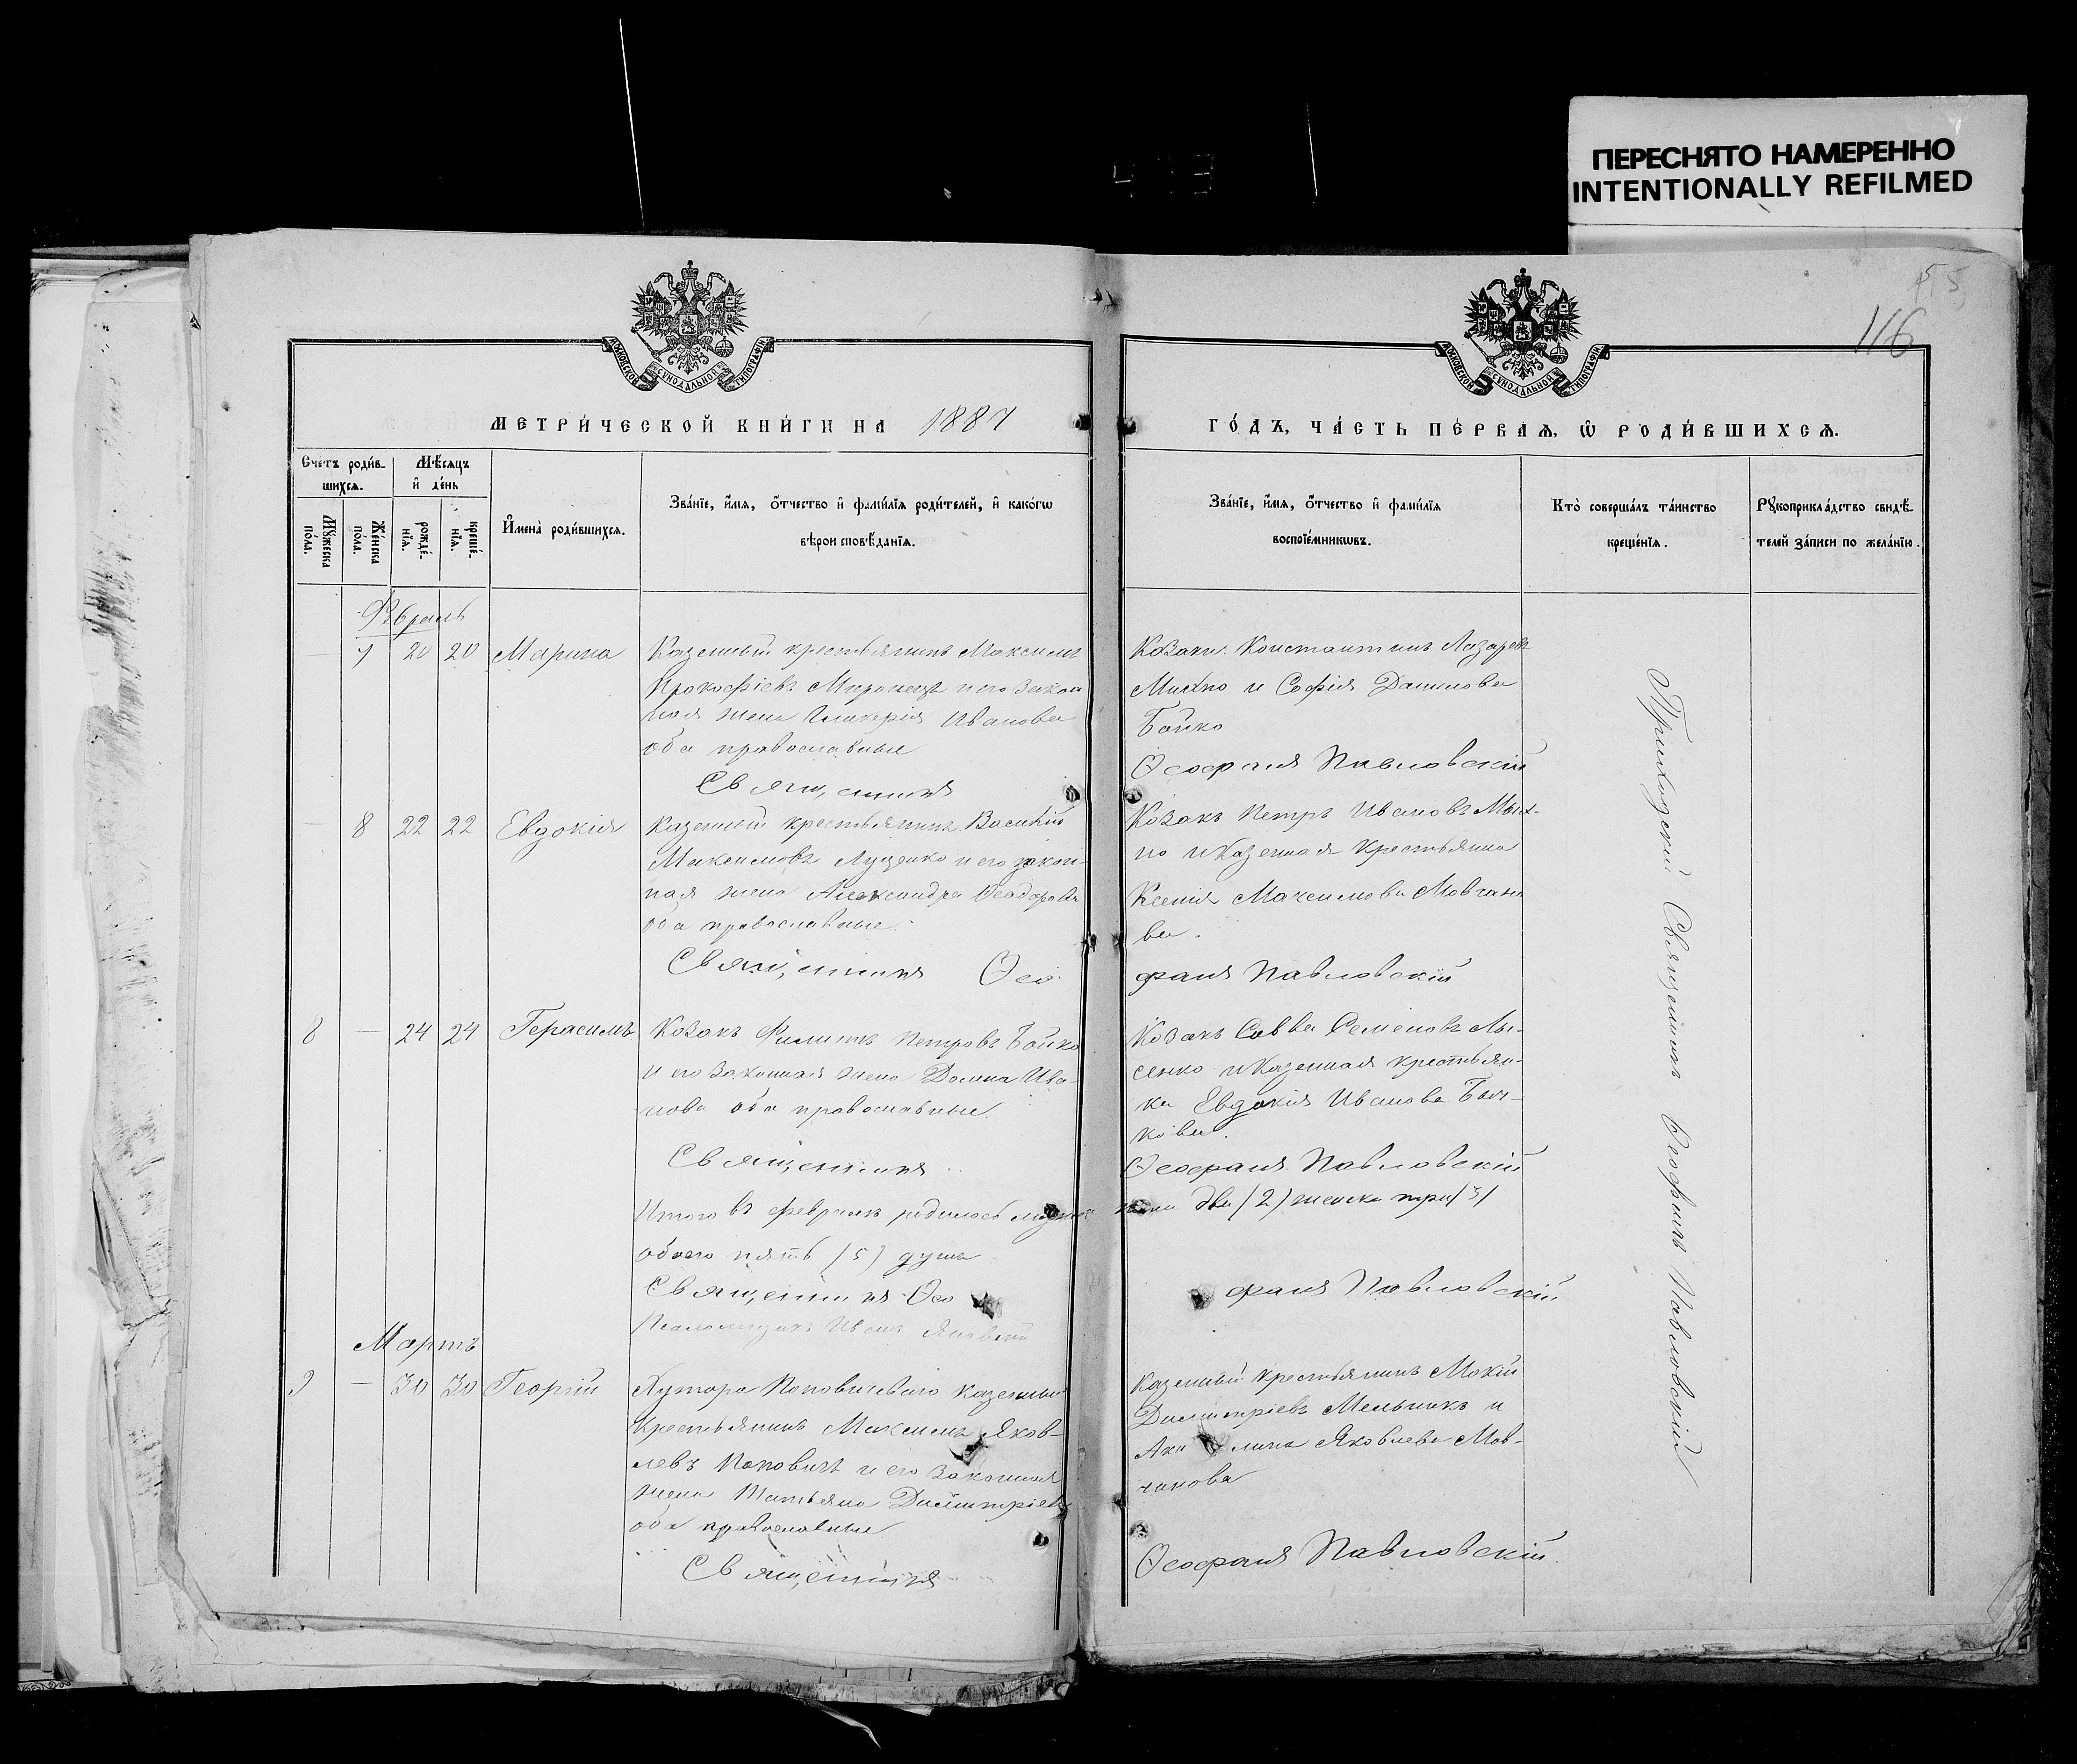 ПЕРЕСНЯТО НАМЕРЕННО
INTENTIONALLY REFILMED
116
МОСКОВСКОЙ СѴНОДАЛЬНОЙ ТИПОГРАФІИ
МОСКОВСКОЙ СѴНОДАЛЬНОЙ ТИПОГРАФІИ
МЕТРИ́ЧЕСКОЙ КНИ́ГИ НА 1887
ГО́ДЪ, ЧА́СТЬ ПЕ́РВАѦ, Ѽ РОДИ́ВШИХСѦ.
Счетъ роди́в-
шихсѧ.
Мꙋ́жеска по́ла.
Же́нска по́ла.
Мѣ́сѧцъ
и҆ де́нь
рожде́-нїѧ.
креще́-нїѧ.
И҆мена̀ роди́вшихсѧ.
Зва́нїе, и҆́мѧ, ѻ҆́тчество и҆ фами́лїѧ роди́телей, и҆ како́гѡ
вѣ́роисповѣ́данїѧ.
Зва́нїе, и҆́мѧ, ѻ҆́тчество и҆ фами́лїѧ
воспрїе́мникѡвъ.
Кто̀ соверша́лъ та́инство
креще́нїѧ.
Рꙋкоприкла́дство свидѣ́-
телей за́писи по жела́нїю.
Февраль
7 20 20 Марина
Казенный крестьянинъ Максимъ
Прокофіевъ и его закон
ная жена Гликерія Иванова
оба православные
Священникъ
Козаки Константинъ Лазаревъ
Михно и Софія Данилова
Бойко
Ѳеофанъ Павловскій
— 8 22 22 Евдокія
Казенный крестьянинъ Василій
Максимовъ Луценко и его закон-
ная жена Александра Ѳеодорова
оба православные.
Священникъ Ѳео
Козакъ Петръ Ивановъ Мих-
но и казенная крестьянка
Ксенія Максимова Мовчано
ва.
фанъ Павловскій
8 — 24 24 Герасимъ
Козакъ Филиппъ Петровъ Бойко
и его законная жена Домна Ива-
нова оба православные.
Священникъ
Козакъ Савва Семеновъ Лы-
сенко и казенная крестьян-
ка Евдокія Иванова
кова.
Ѳеофанъ Павловскій
Итого въ февралѣ родилось
два (2) женска три (3)
обоего пять (5) душъ
Священникъ Ѳео
фанъ Павловскій
Псаломщикъ Иванъ
Мартъ
9 — 30 30 Георгій
Хутора Поповичеваго казенный
крестьянинъ Максимъ Яков-
левъ Поповичъ и его законная
жена Татьяна Димитріева
оба православные
Священникъ
Казенный крестьянинъ Мокій
Димитріевъ Мельникъ и
Акилина Яковлева Мов-
чанова
Ѳеофанъ Павловскій.
Приходскій Священникъ Ѳеофанъ Павловскій